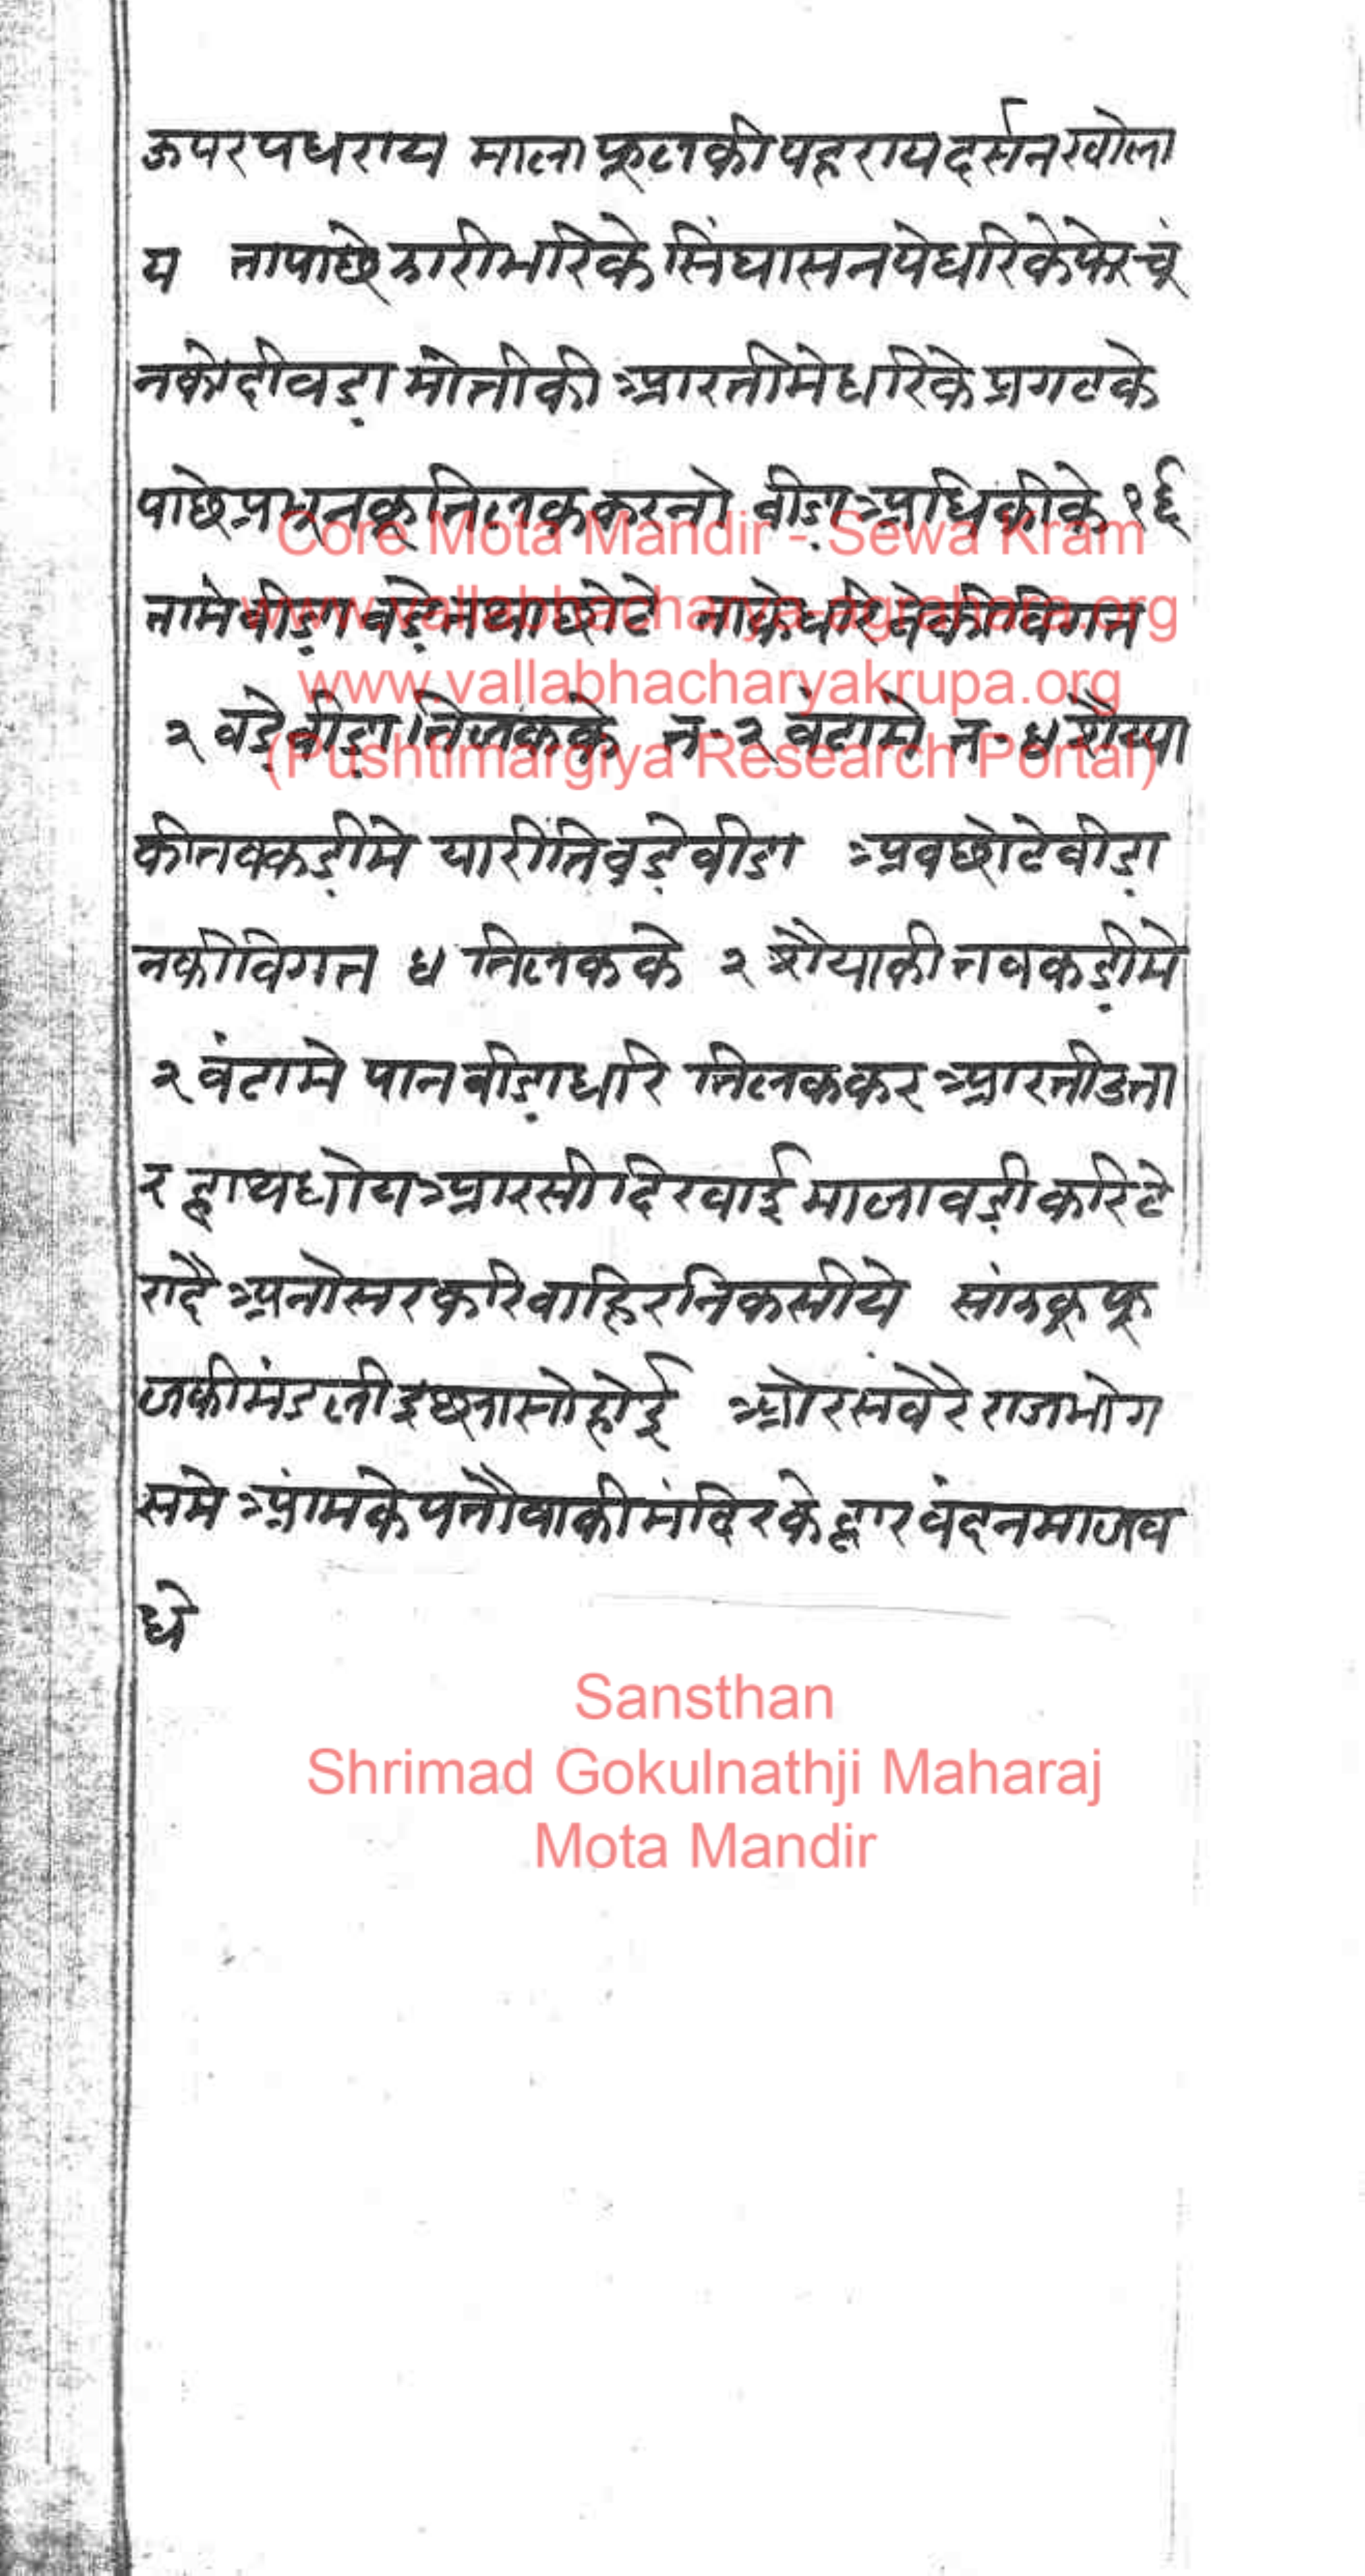 ऊपर पधराय माला फूलकी पहराय दर्सन खोला
य तापाछे झारीभरिके सिंघासनपे धरिके फेर चूं
नको दीवड़ा मोतीकी आरतीमे धरिके प्रगटके
पाछे प्रभुनकू तिलक करनो बीड़ा अधिकीके १६
तामे बीड़ा बड़े तथा छोटे ताके धरिवेकी विगत
२ बड़े बीड़ा तिलकके त-२ बंटामे त-४ शैय्या
की तबकड़ीमे या रीति बड़े बीडा अब छोटे बीड़ा
नकी विगत ४ तिलकके २ शैयाकी तबकड़ीमे
२ बंटामे पान बीड़ा धरि तिलक कर आरती उता
र हाथ धोय आरसी दिखाई माला बड़ी करि टे
रा दै अनोसर करि बाहिर निकसीये सांझकू फू
लकी मंडली इछासो होई ओर सवेरे राजभोग
समे आंमके पतौवाकी मंदिरके द्वार वंदनमाल व
धे
Core Mota Mandir - Sewa Kram
www.vallabhacharya-agrahara.org
www.vallabhacharyakrupa.org
(Pushtimargiya Research Portal)
Sansthan
Shrimad Gokulnathji Maharaj
Mota Mandir